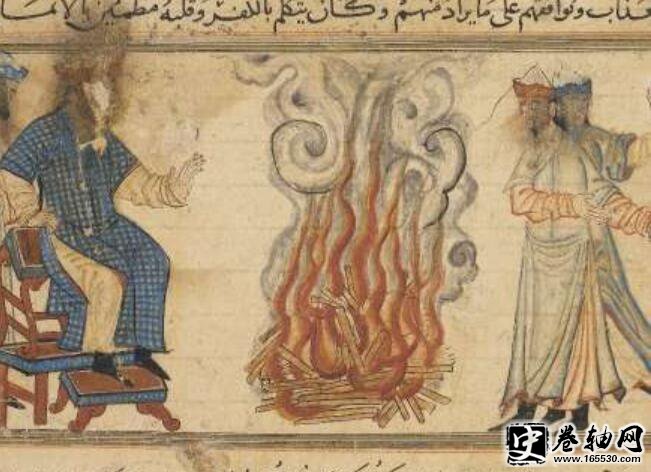 لعذاب ونوافقهم على ما يراد منهم وكان يتكلم بالكفر وقلبه مطمئن بالايما
卷轴网
www.165530.com